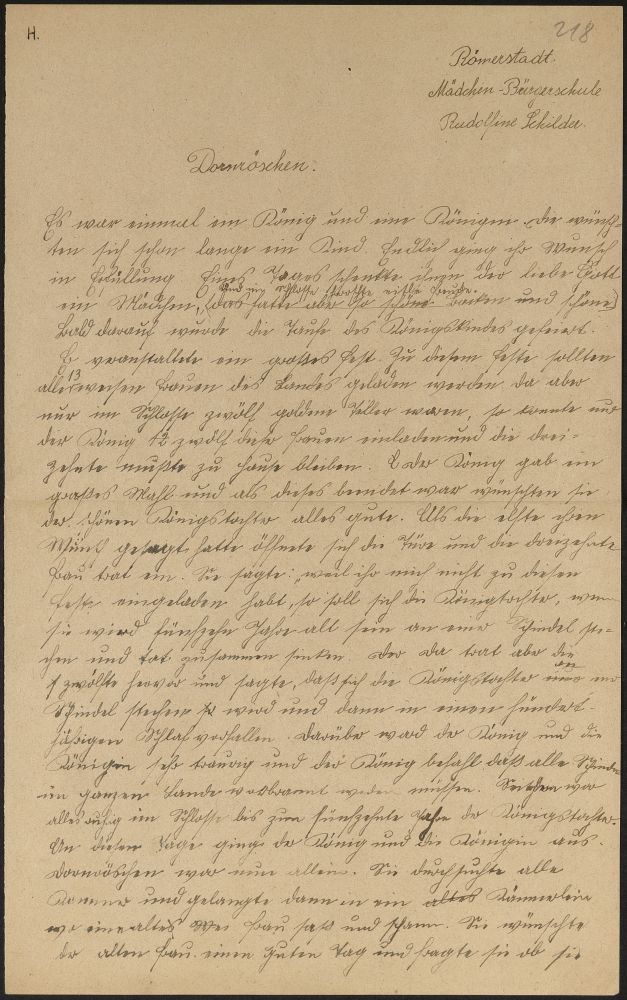 H.
218
Römerstadt.
Mädchen-Bürgerschule
Rudolfine Schilder.
Dornröschen.
Es war einmal ein König und eine Königin. Die wünsch-
ten sich schon lange ein Kind. Endlich ging ihr Wunsch
in Erfüllung Eines Tages schenkte ihnen der liebe Gott
und im Schlosse herrschte eitle Freude.
ein Mädchen, (das hatte aber so schöne Locken und schöne)
Bald darauf wurde die Taufe des Königskindes gefeiert.
Er veranstaltete ein großes Fest. Zu diesem Feste sollten
alle 13 weisen Frauen des Landes geladen werden. Da aber
nur im Schlosse zwölf goldene Teller waren, so konnte nur
der König 12 zwölf dieser Frauen einladen und die drei-
zehnte mußte zu Hause bleiben. Der König gab ein
großes Mahl und als dieses beendet war wünschten sie
der schönen Königstochter alles gute. Als die elfte ihren
Wunsch gesagt hatte öffnete sich die Türe und die dreizehnte
Frau trat ein. Sie sagte: „weil ihr mich nicht zu diesen
Feste eingeladen habt, so soll sich die Königtochter, wenn
sie wird fünfzehn Jahre alt sein an einer Spindel ste-
chen und tot zusammen sinken. Da trat aber die
zwölfte hervor und sagte, daß sich die Königstochter an
Spindel stechen wird und dann in einen hundert-
jährigen Schlaf verfallen. Darüber ward der König und die
Königin sehr traurig und der König befahl daß alle Spindeln
im ganzen Lande verbrannt werden müssen. Seitdem war
alles ruhig im Schlosse bis zum fünfzehnte Jahre der Königstochter.
An diesem Tage ging der König und die Königin aus.
Dornröschen war nun allein. Sie durchsuchte alle
Kammer und gelangte dann in ein altes Kämmerlein
wo eine altes Frau saß und spann. Sie wünschte
der alten Frau einen Guten Tag und fragte sie ob sie